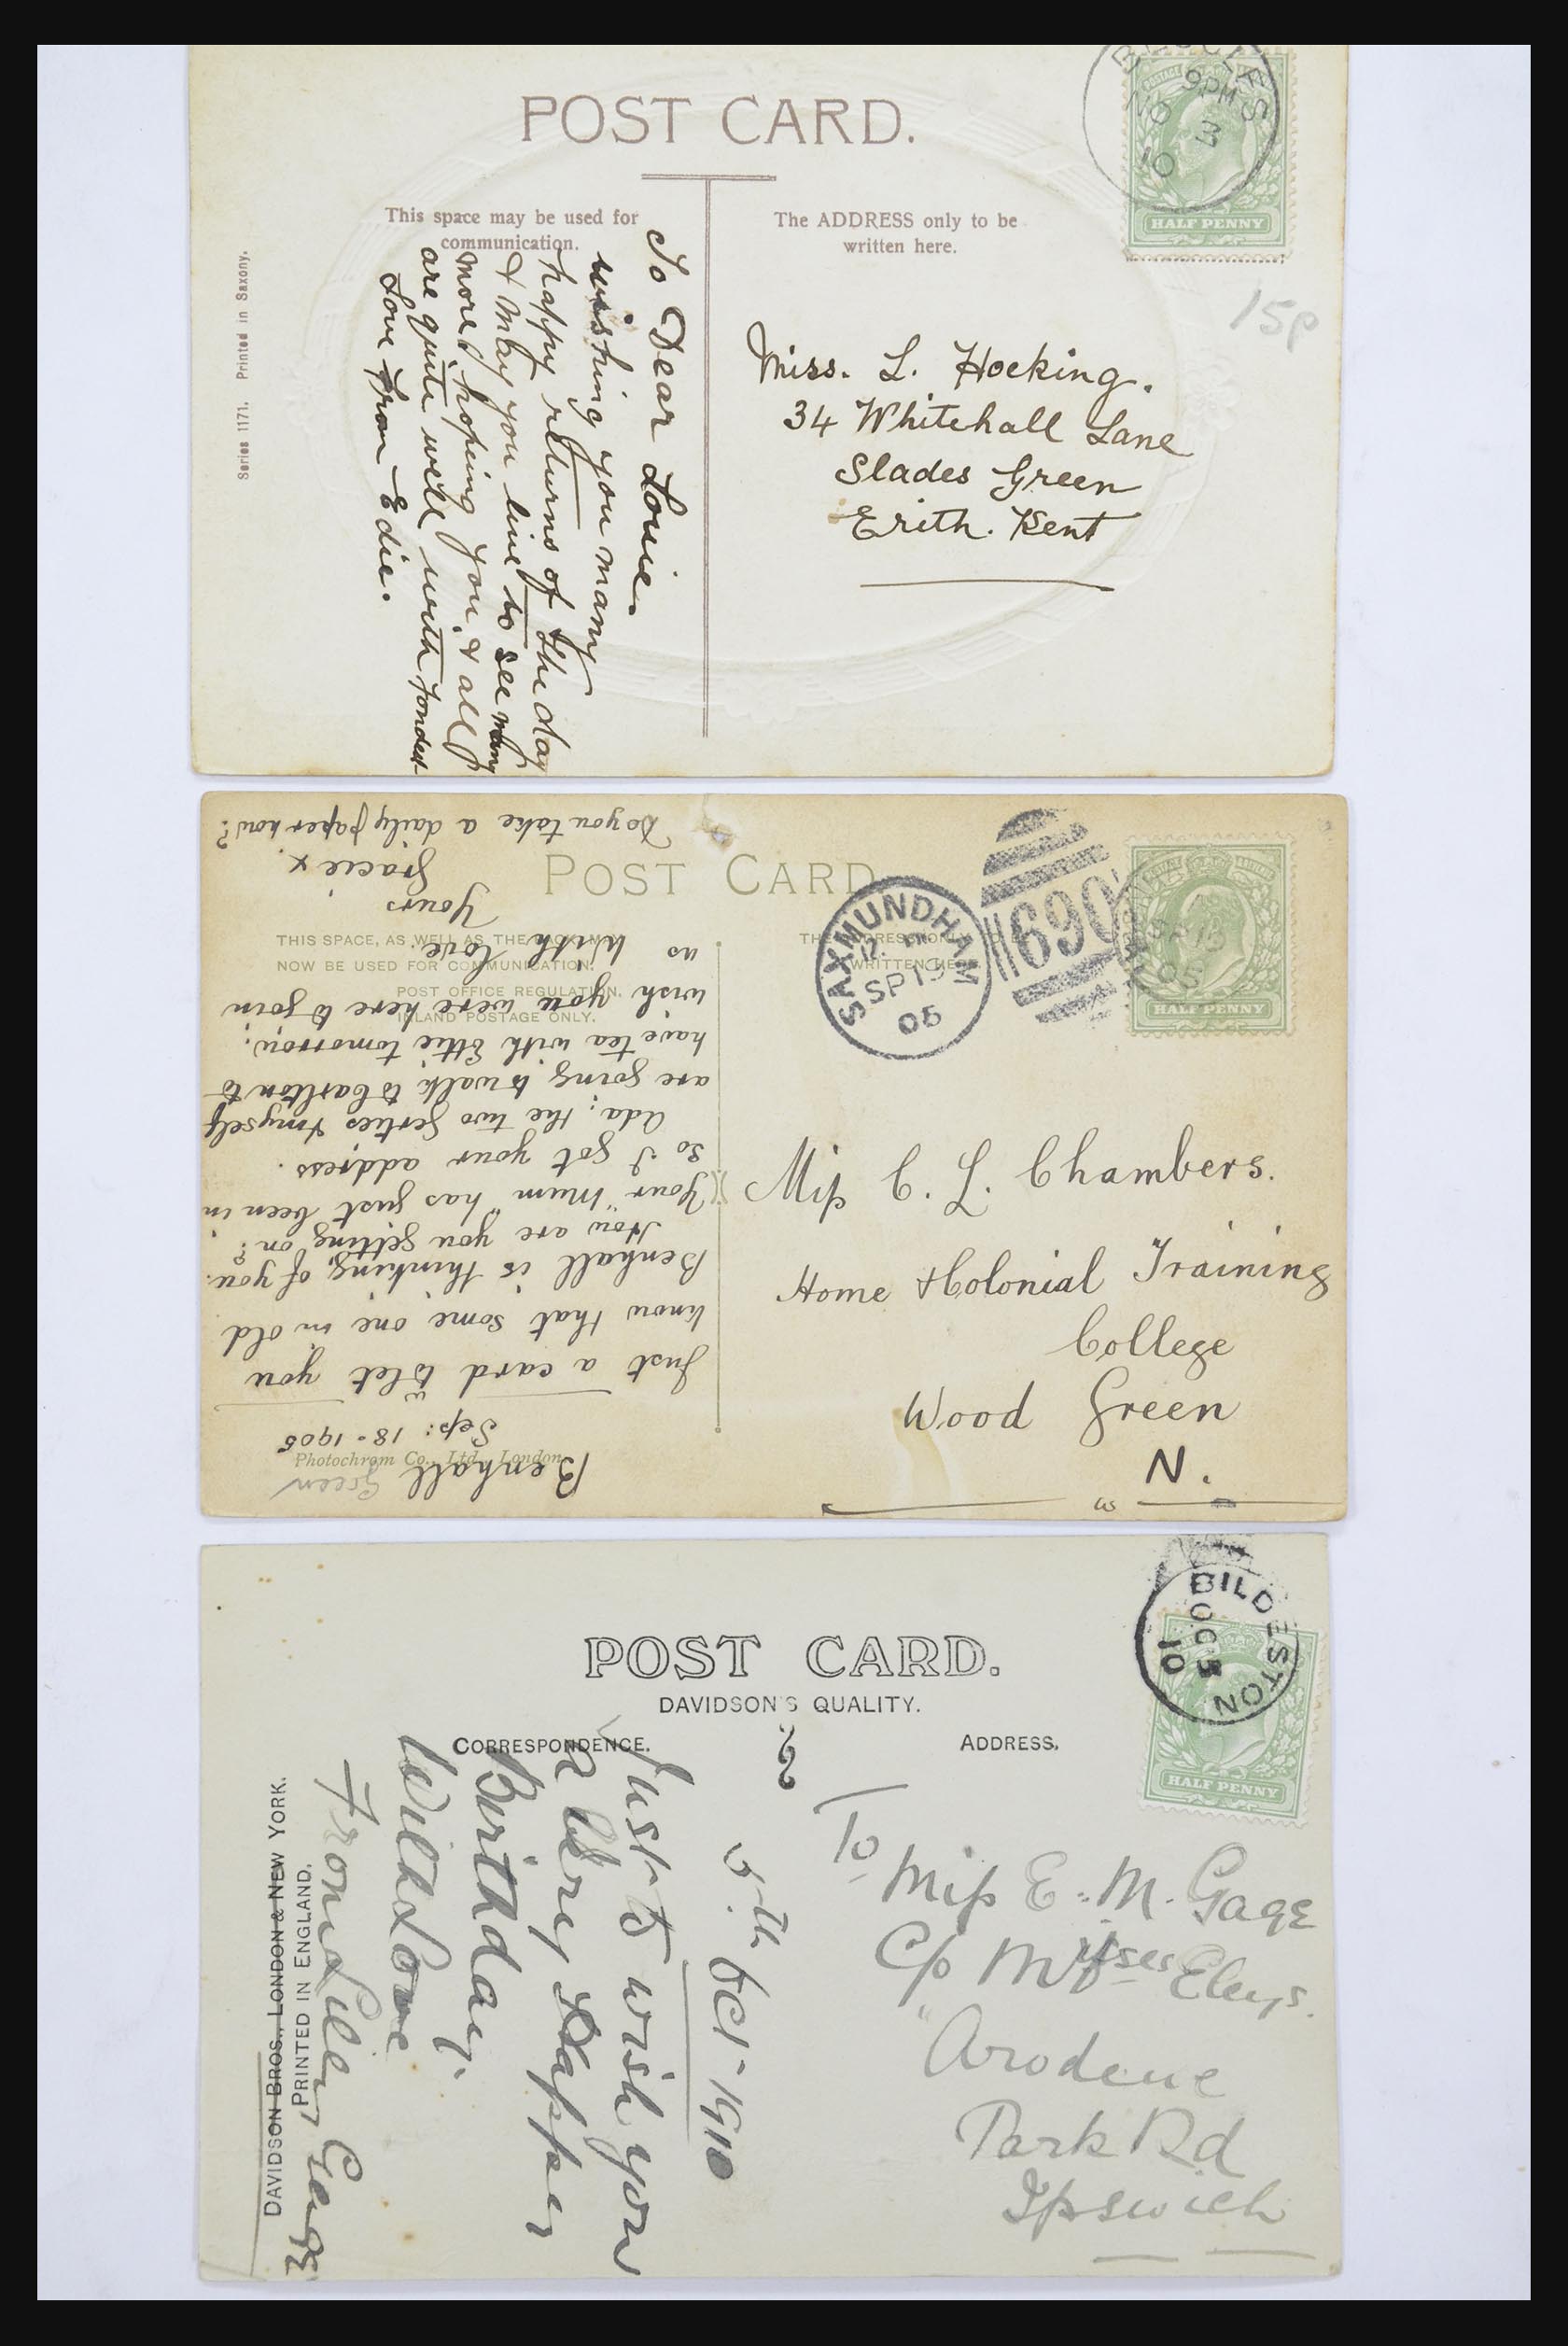 POST CARD.
BECCLES
9PM
NO 3
10
HALF PENNY
This space may be used for
communication.
The ADDRESS only to be
written here.
15p
Series 1171. Printed in Saxony.
To Dear Louie.
wishing you many
happy returns of the day
& may you live to see many
more, hoping you & all
are quite well with fondest
Love from Edie.
Miss. L. Hocking.
34 Whitehall Lane
Slades Green
Erith. Kent
POST CARD
THIS SPACE, AS WELL AS THE BACK, MAY
NOW BE USED FOR COMMUNICATION.
POST OFFICE REGULATION.
INLAND POSTAGE ONLY.
SAXMUNDHAM
SP 19
05
690
HALF PENNY
Photochrom Co., Ltd., London
Benhall
Green
Sep: 18-1905
Just a card to let you
know that some one in old
Benhall is thinking of you.
How are you getting on?
Your "Mum" has just been in
so I got your address.
Ada; the two Gerties & myself
are going to walk to Carlton to
have tea with Ettie tomorrow;
wish you were here to join
us With love
Yours
Gracie x
Do you take a daily paper now?
Miss C. L. Chambers.
Home & Colonial Training
College
Wood Green
N.
POST CARD.
DAVIDSON'S QUALITY.
CORRESPONDENCE.
ADDRESS.
BILDESTON
OC 5
10
HALF PENNY
DAVIDSON BROS., LONDON & NEW YORK.
PRINTED IN ENGLAND.
22
5th Oct-1910
Just to wish you
a Very Happy
Birthday.
With Love
From Lily Gage
To
Miss E. M. Gage
C/o Misses Eleys.
"Arodene
Park Rd
Ipswich